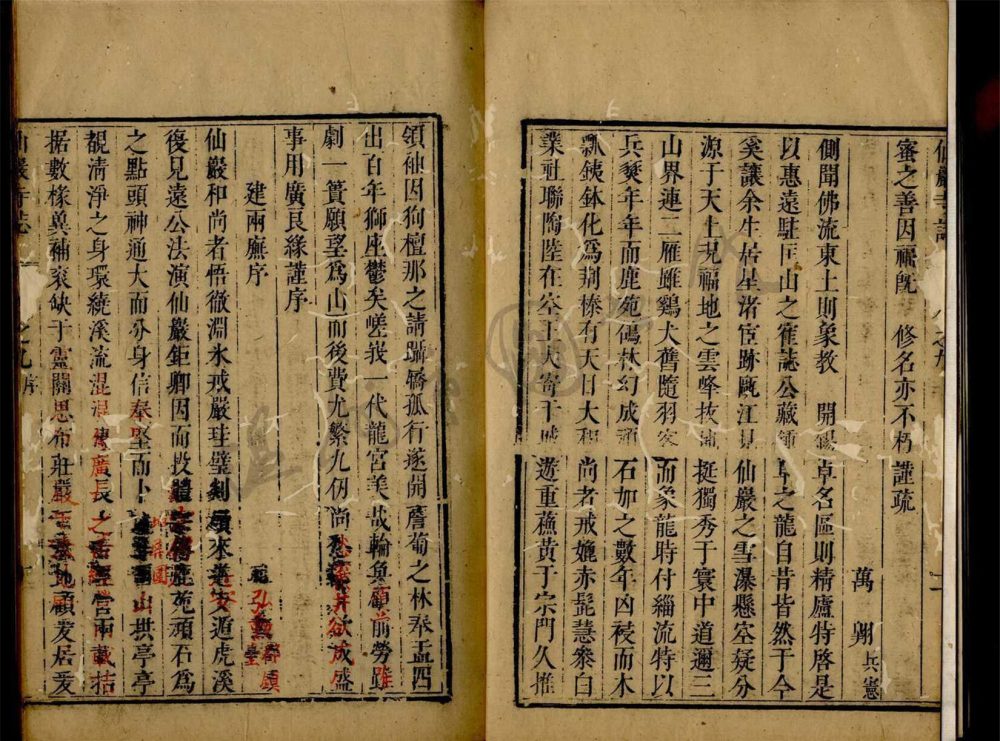 蜜之善因福既 修名亦不朽謹疏
萬 翺 兵憲
側聞佛流東土則象教 開錫卓名區則精廬特啓是
以惠遠駐匡山之隺誌公藏鍾阜之龍自昔皆然于今
奚讓余生居星渚宦跡甌江見仙巖之雪瀑懸空疑分
源于天上見福地之雲峰拔地挺獨秀于寰中道邇三
山界連二雁雖鷄犬舊隨羽客而象龍時付緇流特以
兵燹年年而鹿苑鶴林幻成頑石加之數年凶祲而木
瓢銕鉢化爲荆榛有天目大和尚者戒娩赤髭慧叅白
業社聯陶陸在空王大寄于城遊重蘸黄于宗門久推
領袖因狗檀那之請躡蹻孤行遂開薝蔔之林奉盂四
出百年獅座鬱矣嵯峩一代龍宮美哉輪奐顧前勞雖
劇一簣願望爲山而後費尤繁九仞尚 井欲成盛
事用廣良緣謹序
建兩廡序
弘勲
仙巖和尚者悟徹淵氷戒嚴珪璧 願來道安遁虎溪
復見遠公法演仙巖鉅卿因而投體 鹿苑頑石爲
之點頭神通大而分身信奉堅而卜 山拱亭亭
覩清淨之身環繞溪流混混 廣長之舌經營兩載拮
据數椽冀補衮缺于靈關思布莊嚴于 地顧爰居爰
仙巖寺志 之九 序